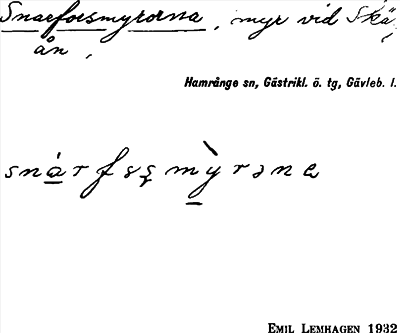 Snarforsmyrorna, myr vid Skä
ån,
Hamrånge sn, Gästrikl. ö. tg, Gävleb. l.
EMIL LEMHAGEN 1932